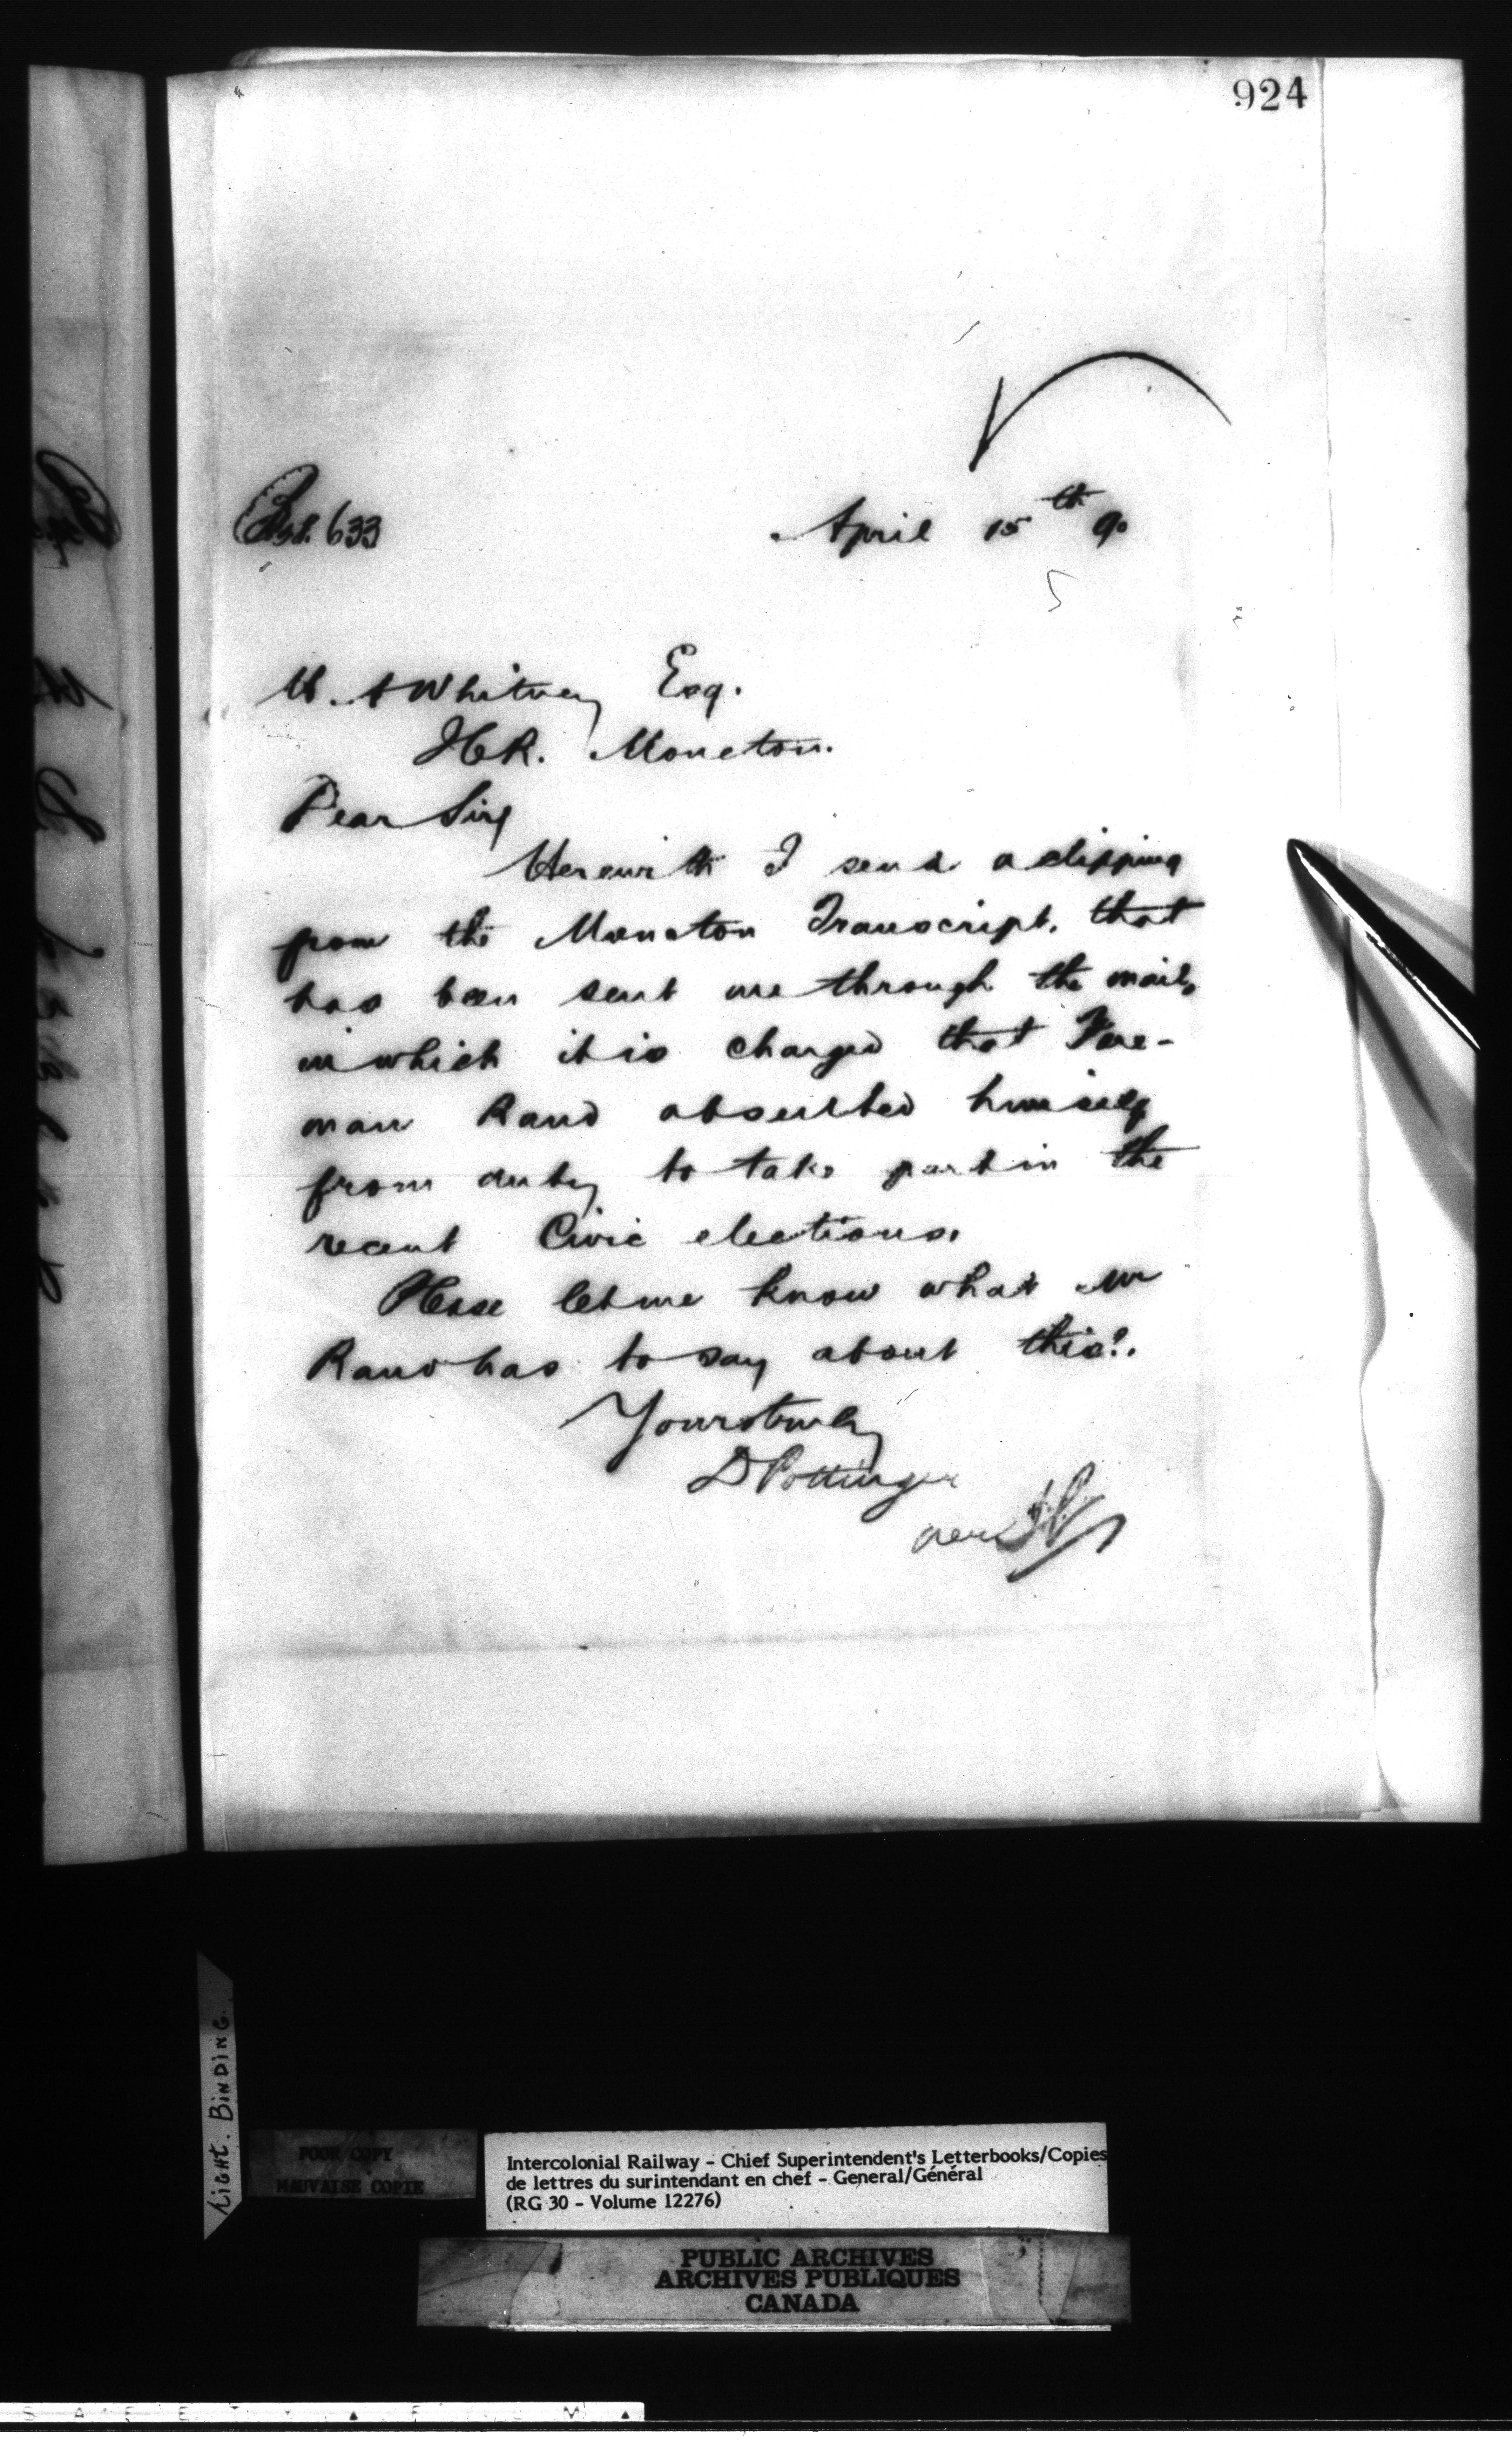 924
633
April 15th 90
Whitney Esq.
Moncton.
Dear Sir,
Herewith I send a clipping
from the Moncton Transcript, that
has been sent me through the mail,
in which it is charged that Fore-
man Rand absented himself
from duty to take part in the
recent Civic elections.
Please let me know what Mr
Rand has to say about this?.
Yours truly
D Pottinger
per
TIGHT. BINDING.
POOR COPY
MAUVAISE COPIE
Intercolonial Railway - Chief Superintendent's Letterbooks/Copies
de lettres du surintendant en chef - General/Général
(RG 30 - Volume 12276)
PUBLIC ARCHIVES
ARCHIVES PUBLIQUES
CANADA